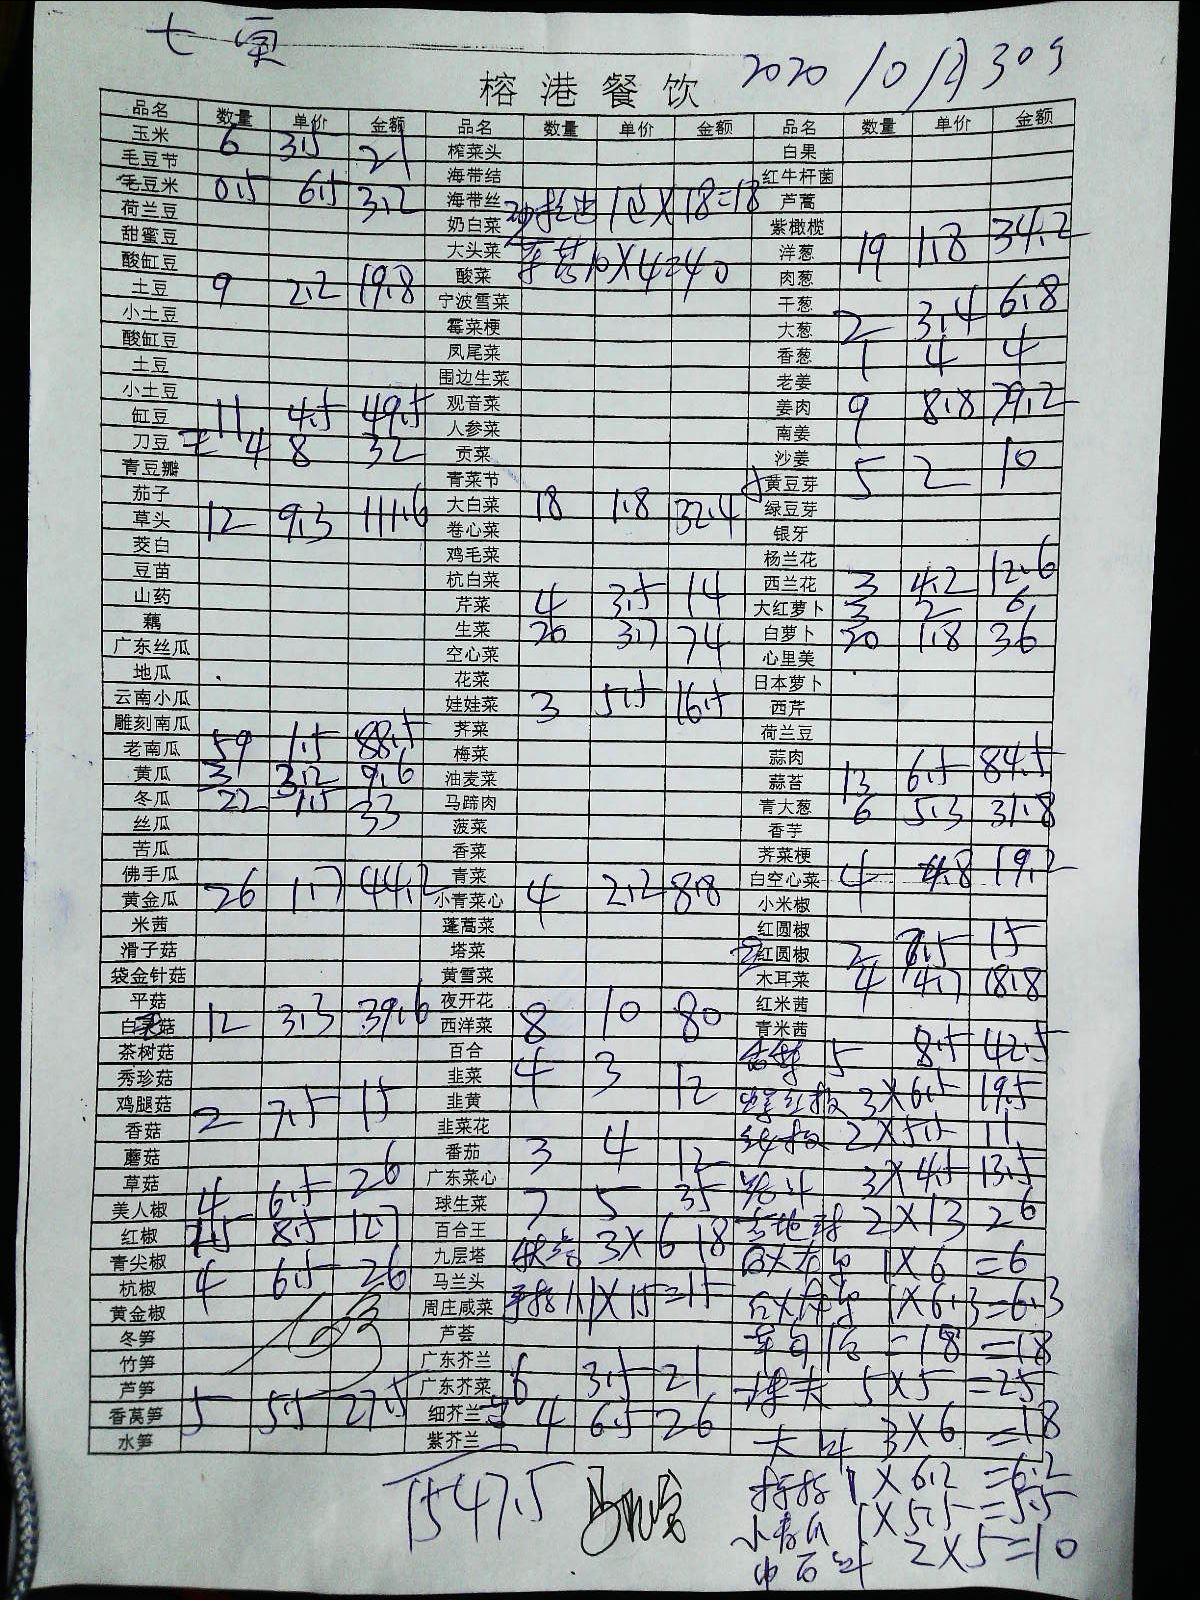 七页
2020 10月30号
榕港餐饮
品名 数量 单价 金额 品名 数量 单价 金额 品名 数量 单价 金额
玉米 6 3.5 21 榨菜头 白果
毛豆节 海带结 红牛杆菌
毛豆米 0.5 6.5 3.2 海带丝 1包X18=18 芦蒿
荷兰豆 奶白菜 紫橄榄
甜蜜豆 大头菜 10X4=40 洋葱 19 1.8 34.2
酸缸豆 酸菜 肉葱
土豆 9 2.2 19.8 宁波雪菜 干葱
小土豆 霉菜梗 大葱 2 3.4 6.8
酸缸豆 凤尾菜 香葱 1 4 4
土豆 围边生菜 老姜
小土豆 观音菜 姜肉 9 8.8 79.2
缸豆 11 4.5 49.5 人参菜 南姜
刀豆 4 8 32 贡菜 沙姜
青豆瓣 青菜节 黄豆芽 5 2 10
茄子 大白菜 18 1.8 32.4 绿豆芽
草头 12 9.3 111.6 卷心菜 银牙
茭白 鸡毛菜 杨兰花
豆苗 杭白菜 西兰花 3 4.2 12.6
山药 芹菜 4 3.5 14 大红萝卜 3 2 6
藕 生菜 20 3.7 74 白萝卜 20 1.8 36
广东丝瓜 空心菜 心里美
地瓜 花菜 日本萝卜
云南小瓜 娃娃菜 3 5.5 16.5 西芹
雕刻南瓜 荠菜 荷兰豆
老南瓜 59 1.5 88.5 梅菜 蒜肉
黄瓜 3 3.2 9.6 油麦菜 蒜苔 13 6.5 84.5
冬瓜 22 1.5 33 马蹄肉 青大葱 6 5.3 31.8
丝瓜 菠菜 香芋
苦瓜 香菜 荠菜梗
佛手瓜 青菜 白空心菜 4 4.8 19.2
黄金瓜 26 1.7 44.2 小青菜心 4 2.2 8.8 小米椒
米茜 蓬蒿菜 红圆椒
滑子菇 塔菜 红圆椒 2 7.5 15
袋金针菇 黄雪菜 木耳菜 4 4.7 18.8
平菇 夜开花 红米茜
白灵菇 12 3.3 39.6 西洋菜 8 10 80 青米茜
茶树菇 百合 5 8.5 42.5
秀珍菇 韭菜 4 3 12
鸡腿菇 韭黄 3X6.5 19.5
香菇 2 7.5 15 韭菜花 2X5.5 11
蘑菇 番茄 3 4 12
草菇 广东菜心 3X4.5 13.5
美人椒 4 6.5 26 球生菜 7 5 35 2X13 26
红椒 1.5 8.5 12.7 百合王
青尖椒 九层塔 3X6 18 1X6=6
杭椒 4 6.5 26 马兰头
黄金椒 周庄咸菜 1X15=15 1X6.3=6.3
冬笋 芦荟 =18 =18
竹笋 广东芥兰
芦笋 广东芥菜 6 3.5 21 5X5=25
香莴笋 5 5.5 27.5 细芥兰 4 6.5 26
水笋 紫芥兰 3X6=18
1547.5
1X6.2=6.2
1X5.5=5.5
2X5=10